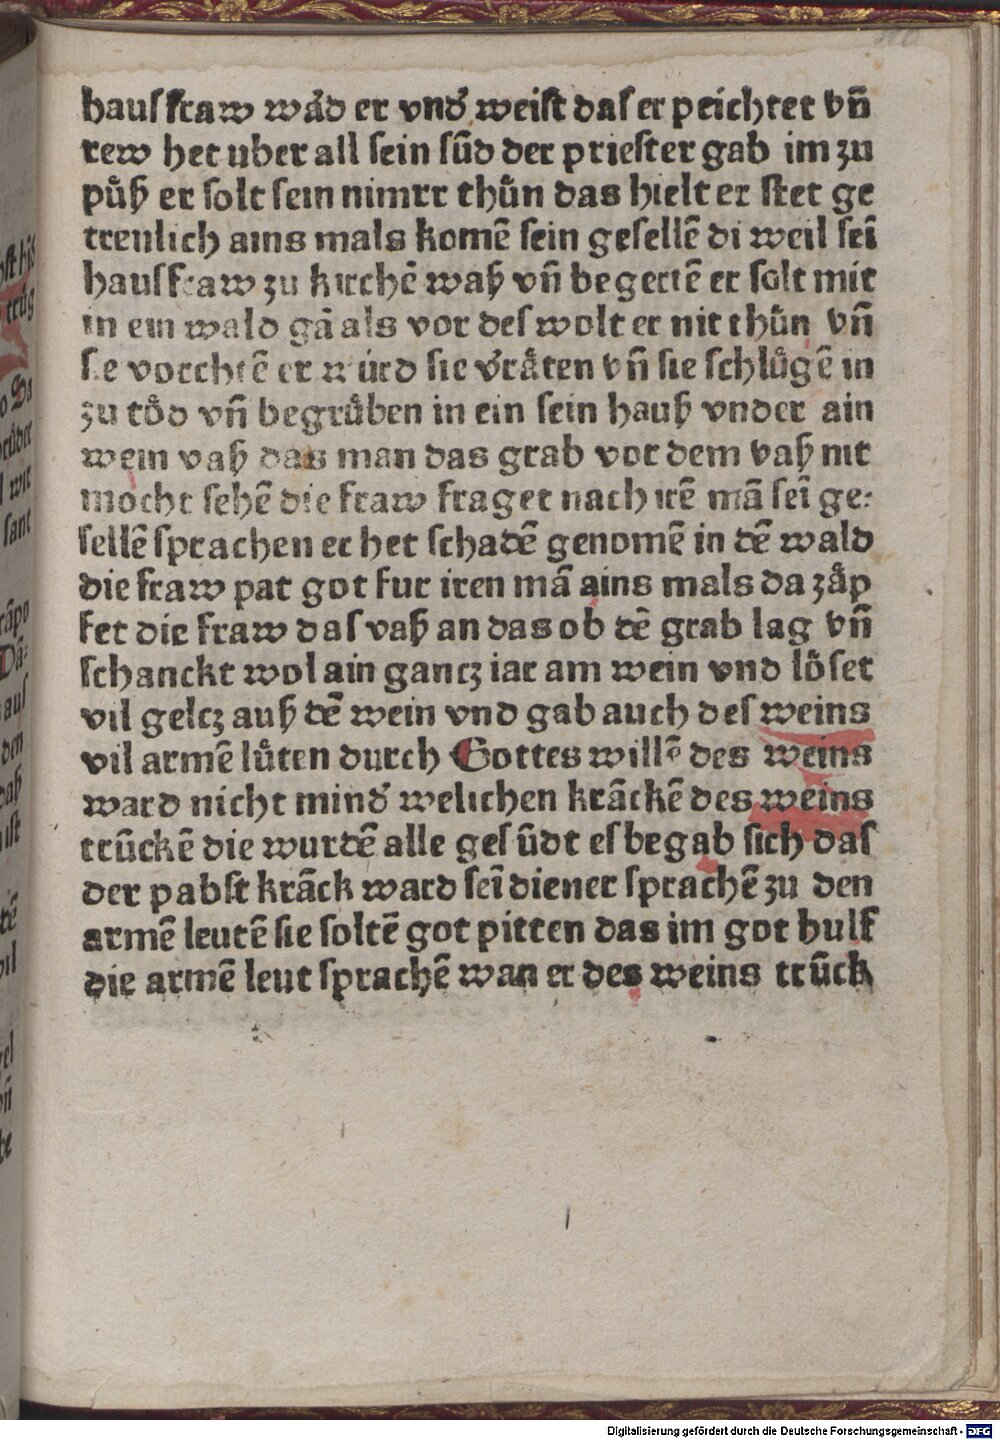 hauſfraw wåd er vnd' weiſt daſ er peichtet vn̄
rew het uber all ſein ſūd der prieſter gab im zu
pu̇ß er ſolt ſein nimrr thu̇n das hielt er ſtet ge
treulich ains mals komē ſein geſellē di weil ſeī
hauſfraw zu kirchē waß vn̄ begertē er ſolt mit
in ein wald gā als vor deſ wolt er nit thu̇n vn̄
ſie vorchtē er wurd ſie v'råten vn̄ ſie ſchlu̇gē in
zu tőd vn̄ begru̇ben in ein ſein hauß vnder ain
wein vaß das man das grab vor dem vaß nit
mocht ſehē die fraw fraget nach irē mā ſeī ge:
ſellē ſprachen er het ſchadē genomē in dē wald
die fraw pat got fur iren mā ains mals da zåp
fet die fraw daſ vaß an das ob dē grab lag vn̄
ſchanckt wol ain gantz iar am wein vnd lőſet
vil geltz auß dē wein vnd gab auch deſ weins
vil armē lu̇ten durch Gottes willē des weins
ward nicht mind' welichen krāckē des weins
trūckē die wurdē alle geſūdt eſ begab ſich daſ
der pabſt krāck ward ſeī diener ſprachē zu den
armē leutē ſie ſoltē got pitten das im got hulf
die armē leut ſprachē wan er des weins trūck
Digitalisierung gefördert durch die Deutsche Forschungsgemeinschaft - DFG